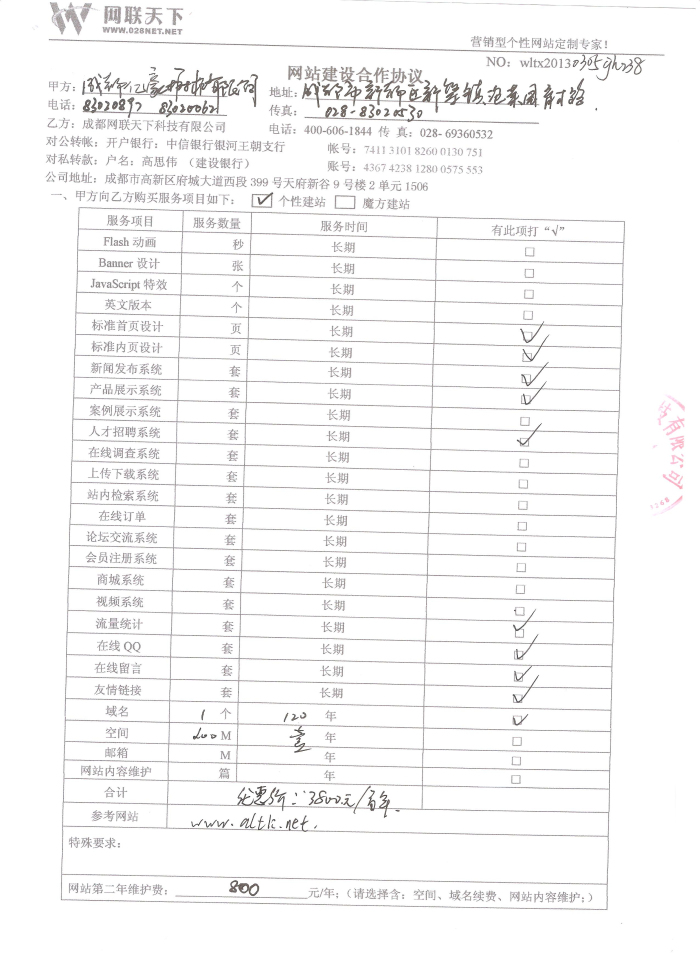 网联天下
WWW.028NET.NET
营销型个性网站定制专家!
网站建设合作协议
NO: wltx20130305gh238
甲方: 成都市亿豪 有限公司 地址: 成都市新都区新繁镇泡菜园育才路
电话: 83020892 83020621 传真: 028-83020530
乙方: 成都网联天下科技有限公司 电话: 400-606-1844 传 真: 028- 69360532
对公转帐: 开户银行: 中信银行银河王朝支行 帐号: 7411 3101 8260 0130 751
对私转款: 户名: 高思伟 (建设银行) 账号: 4367 4238 1280 0575 553
公司地址: 成都市高新区府城大道西段 399 号天府新谷 9 号楼 2 单元 1506
一、甲方向乙方购买服务项目如下: ☑ 个性建站 □ 魔方建站
服务项目 服务数量 服务时间 有此项打“√”
Flash 动画 秒 长期 □
Banner 设计 张 长期 □
JavaScript 特效 个 长期 □
英文版本 个 长期 □
标准首页设计 页 长期 ☑
标准内页设计 页 长期 ☑
新闻发布系统 套 长期 ☑
产品展示系统 套 长期 ☑
案例展示系统 套 长期 □
人才招聘系统 套 长期 ☑
在线调查系统 套 长期 □
上传下载系统 套 长期 □
站内检索系统 套 长期 □
在线订单 套 长期 □
论坛交流系统 套 长期 □
会员注册系统 套 长期 □
商城系统 套 长期 □
视频系统 套 长期 □
流量统计 套 长期 ☑
在线 QQ 套 长期 ☑
在线留言 套 长期 ☑
友情链接 套 长期 ☑
域名 1 个 120 年 ☑
空间 200 M 壹 年 □
邮箱 M 年 □
网站内容维护 篇 年 □
合计 优惠价: 3800元/首年.
参考网站 www.altk.net.
特殊要求:
网站第二年维护费: 800 元/年; (请选择含: 空间、域名续费、网站内容维护;)
技有限公司